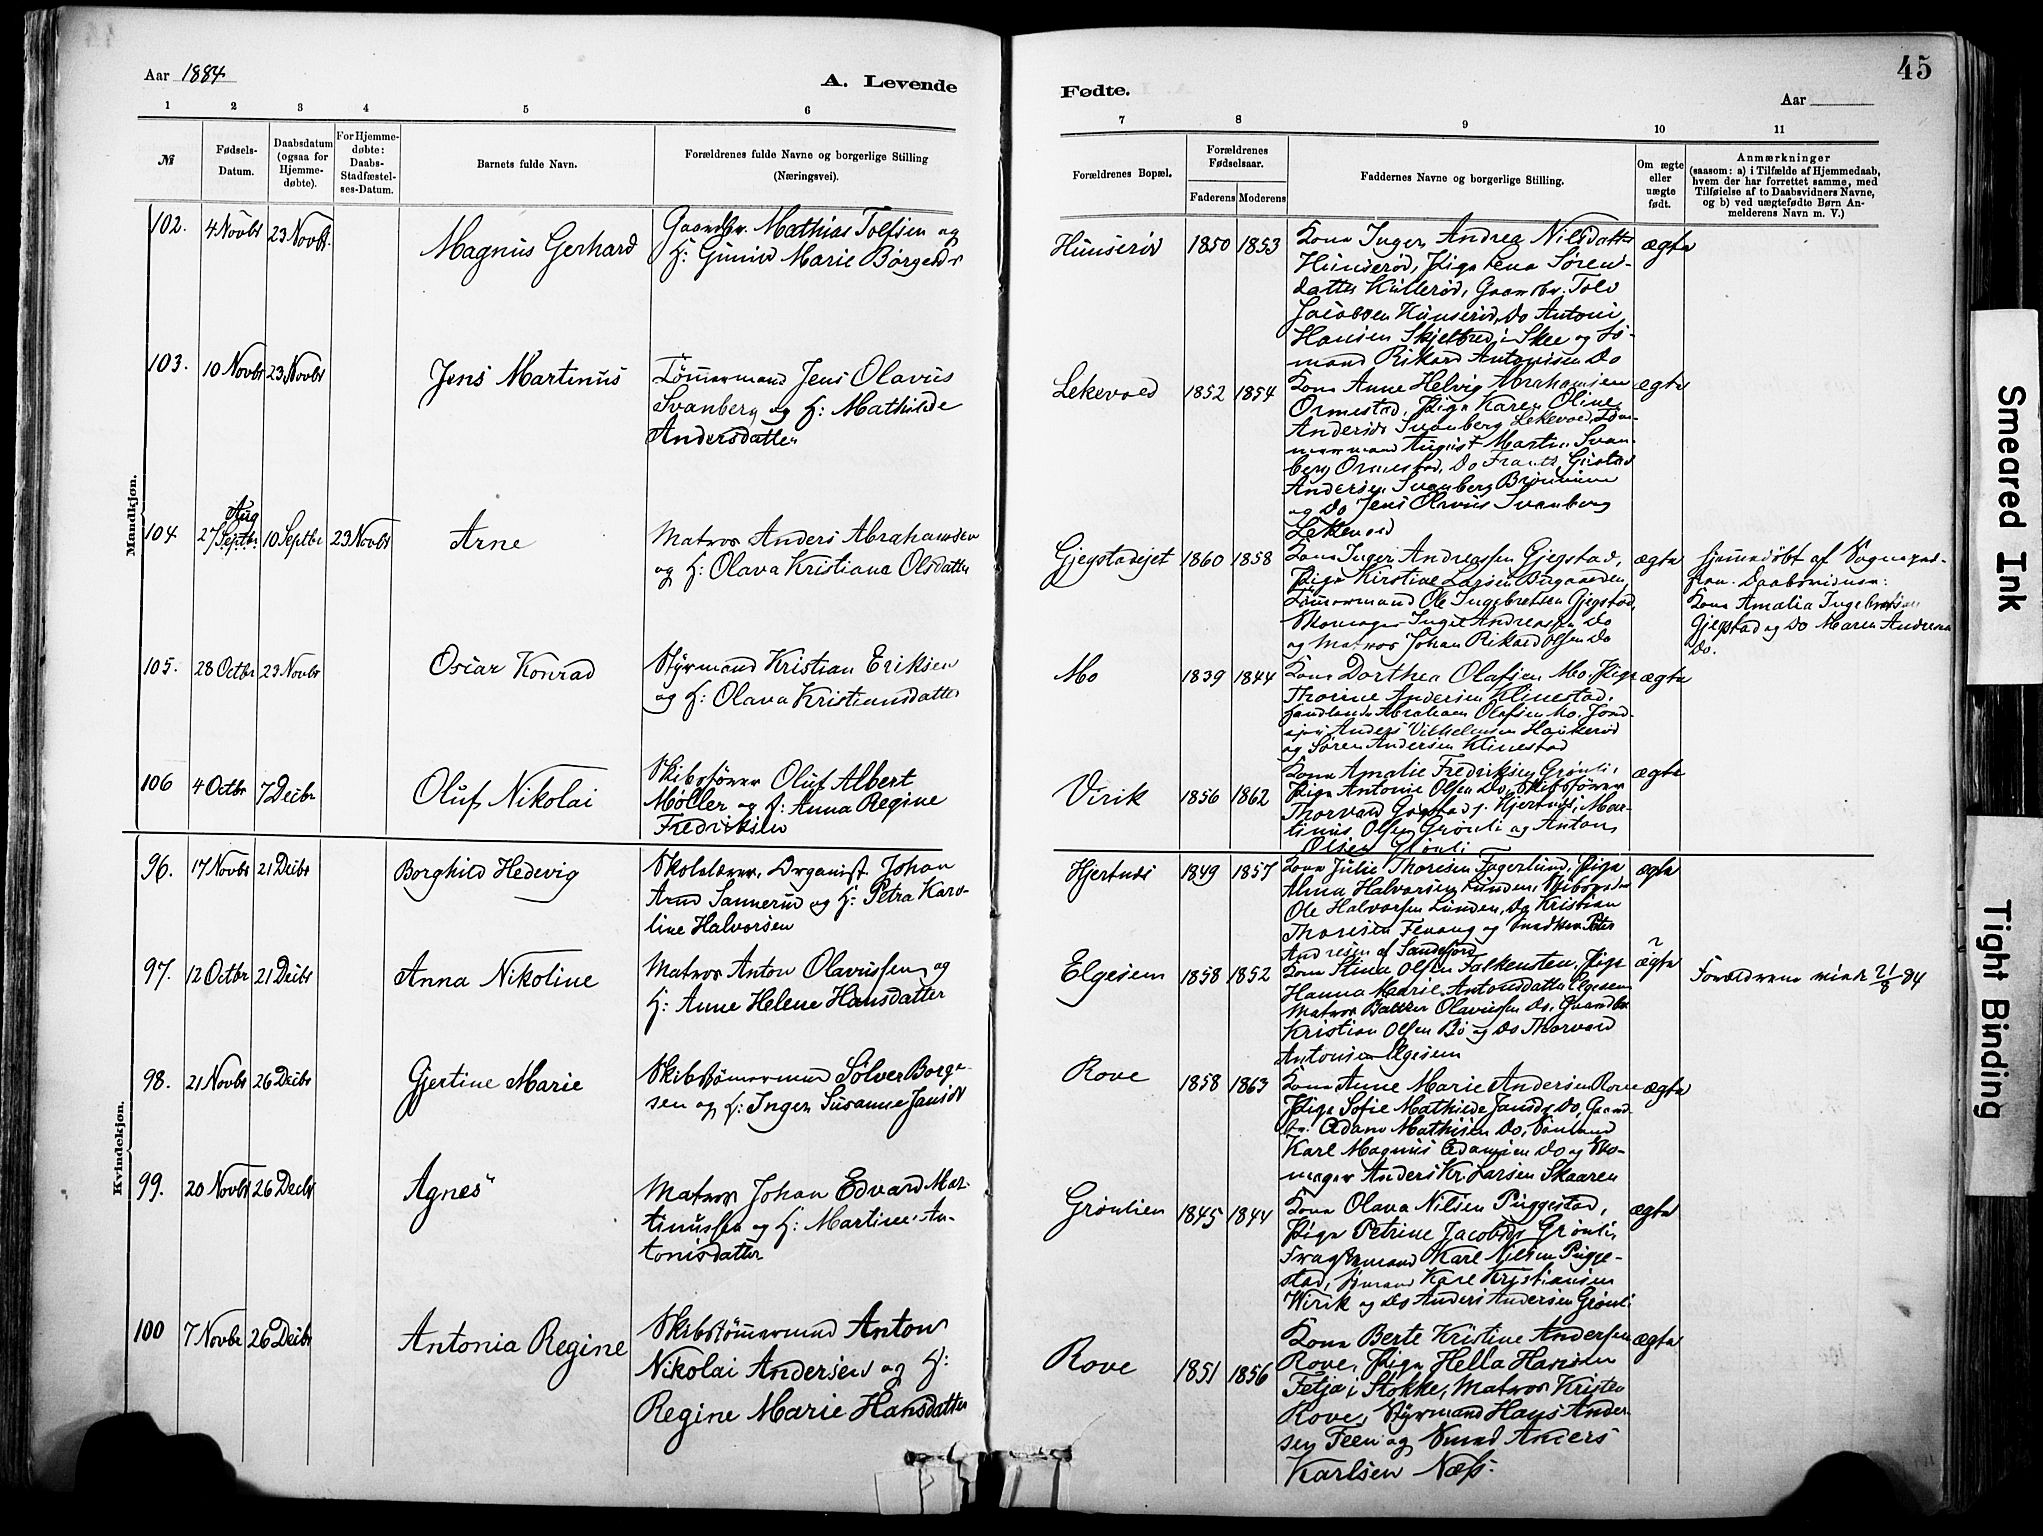 Aar 1884
A. Levende
1 2 3 4 5 6
№
Fødsels-
Datum.
Daabsdatum
(ogsaa for
Hjemme-
døbte).
For Hjemme-
døbte:
Daabs-
Stadfæstel-
ses-Datum.
Barnets fulde Navn.
Forældrenes fulde Navne og borgerlige Stilling
(Næringsvei).
Mandkjøn.
102. 4 Novbr 23 Novbr. Magnus Gerhard
Gaardbr. Mathias Tolfsen og
H: Gunild Marie Børgesdr
103. 10 Novbr 23 Novbr Jens Martinus
Tömmermand Jens Olavus
Svanberg og H: Mathilde
Andersdatter
Aug
104 27 Septbr 10 Septbr 23 Novbr Arne
Matros Anders Abrahamsen
og H: Olava Kristiana Olsdatter
105. 28 Octbr 23 Novbr Oscar Konrad
Styrmand Kristian Eriksen
og H: Olava Kristiansdatter
106 4 Octbr 7 Decbr Oluf Nikolai
Skibsfører Oluf Albert
Møller og H: Anna Regine
Fredriksen
Kvindekjøn.
96. 17 Novbr 21 Decbr Borghild Hedevig
Skolelærer, Organist Johan
Arnd Sannerud og H: Petra Karo-
line Halvorsen
97. 12 Octbr 21 Decbr Anna Nikoline
Matros Anton Olavussen og
H: Anne Helene Hansdatter
98. 21 Novbr 26 Decbr Gjertine Marie
Skibstømmermand Sølver Borge-
sen og H: Inger Susanne Jansdr
99. 20 Novbr 26 Decbr Agnes
Matros Johan Edvard Mar-
tinussen og H: Martine An-
tonisdatter
100 7 Novbr 26 Decbr Antonia Regine
Skibstømmermand Anton
Nikolai Andersen og H:
Regine Marie Hansdatter
45
Fødte.
Aar
7 8 9 10 11
Forældrenes Bopæl.
Forældrenes
Fødselsaar.
Faderens Moderens
Faddernes Navne og borgerlige Stilling.
Om ægte
eller
uægte
født.
Anmærkninger
(saasom: a) i Tilfælde af Hjemmedaab,
hvem der har forrettet samme, med
Tilføielse af to Daabsvidners Navne,
og b) ved uægtefødte Børn An-
melderens Navn m. V.)
Hunserød 1850 1853 ægte
Kone Inger Andrea Nilsdatter
Hunserød, Pige Lena Søren-
datter Kullerød, Gaardbr. Tolv
Jacobsen Hunserød, Do Antoni
Hansen Skjelbred i Skee og Sø-
mand Rikard Antonisen Do
Lekevold 1852 1854 ægte
Kone Anne Helvig Abrahamsen
Ormestad, Pige Karen Oline
Andersdr Svanberg Lekevold, Töm-
mermand August Martin Svan-
berg Ormestad, Do Frants Gustav
Andersen Svanberg
og Do Jens Olavus Svanberg
Lekevold
Gjegstadejet 1860 1858 ægte
Kone Inger Andreassen Gjegstad,
Pige Kirstine Larsen
Tömmermand Ole Ingebretsen Gjegstad,
Skomager Inger Andreassen Do
og Matros Johan Rikard Olsen Do
Hjemmedøbt af Sognepræ-
sten. Daabsvidner:
Kone Amalia Ingebretsen
Gjegstad og Do Maren Andrea
Do.
Mo 1839 1844 ægte
Kone Dorthea Olafsen Mo, Pige
Thorine Andersen Klinestad,
Handlende Abraham Olafsen Mo, Jord-
Anders Vilhelmsen Haukerød
og Søren Andersen Klinestad
Virik 1856 1862 ægte
Kone Amalie Fredriksen Grønli,
Pige Antonie Olsen Do, Skibsfører
Thorvald Gogstad, Hjertnes, Mar-
tinus Olsen Grønli og Anton
Olsen Grønli
Hjertnes 1849 1857 ægte
Kone Julie Thoresen Fagerlund, Pige
Alma Halvorsen Lunden, Skibsfører
Ole Halvorsen Lunden, Do Kristian
Thoresen Fevang og Snedker Peter
Andresen af Sandefjord
Elgesem 1858 1852 ægte
Kone Stine Olsen Falkensten, Pige
Hanna Marie Antonsdatter Elgesem
Matros Olavussen Do, Gaardbr
Kristian Olsen Bø og Do Thorvald
Antonsen Elgesem
Forældrene viede 21/8 84
Rove 1858 1863 ægte
Kone Anne Marie Andersen Rove
Pige Sofie Mathilde Jansdr Do, Gaard-
br. Adam Mathisen Do, Sømand
Karl Magnus Adamsen Do og Sko-
mager Anders Kr. Larsen Skaaren
Grønlien 1845 1844 ægte
Kone Olava Nilsen Puggestad,
Pige Petrine Jacobsdr Grønli,
Fragtemand Karl Nilsen Pugge-
stad, Sømand Karl Kristiansen
Wirik og Do Anders Andersen Grønli
Rove 1851 1856 ægte
Kone Berte Kristine Andersen
Rove, Pige Hella Hansen
Fetja i Stokke, Matros Kristen
Rove, Styrmand Hans Ander-
sen Feen og Smed Anders
Karlsen Næss.
Smeared Ink
Tight Binding